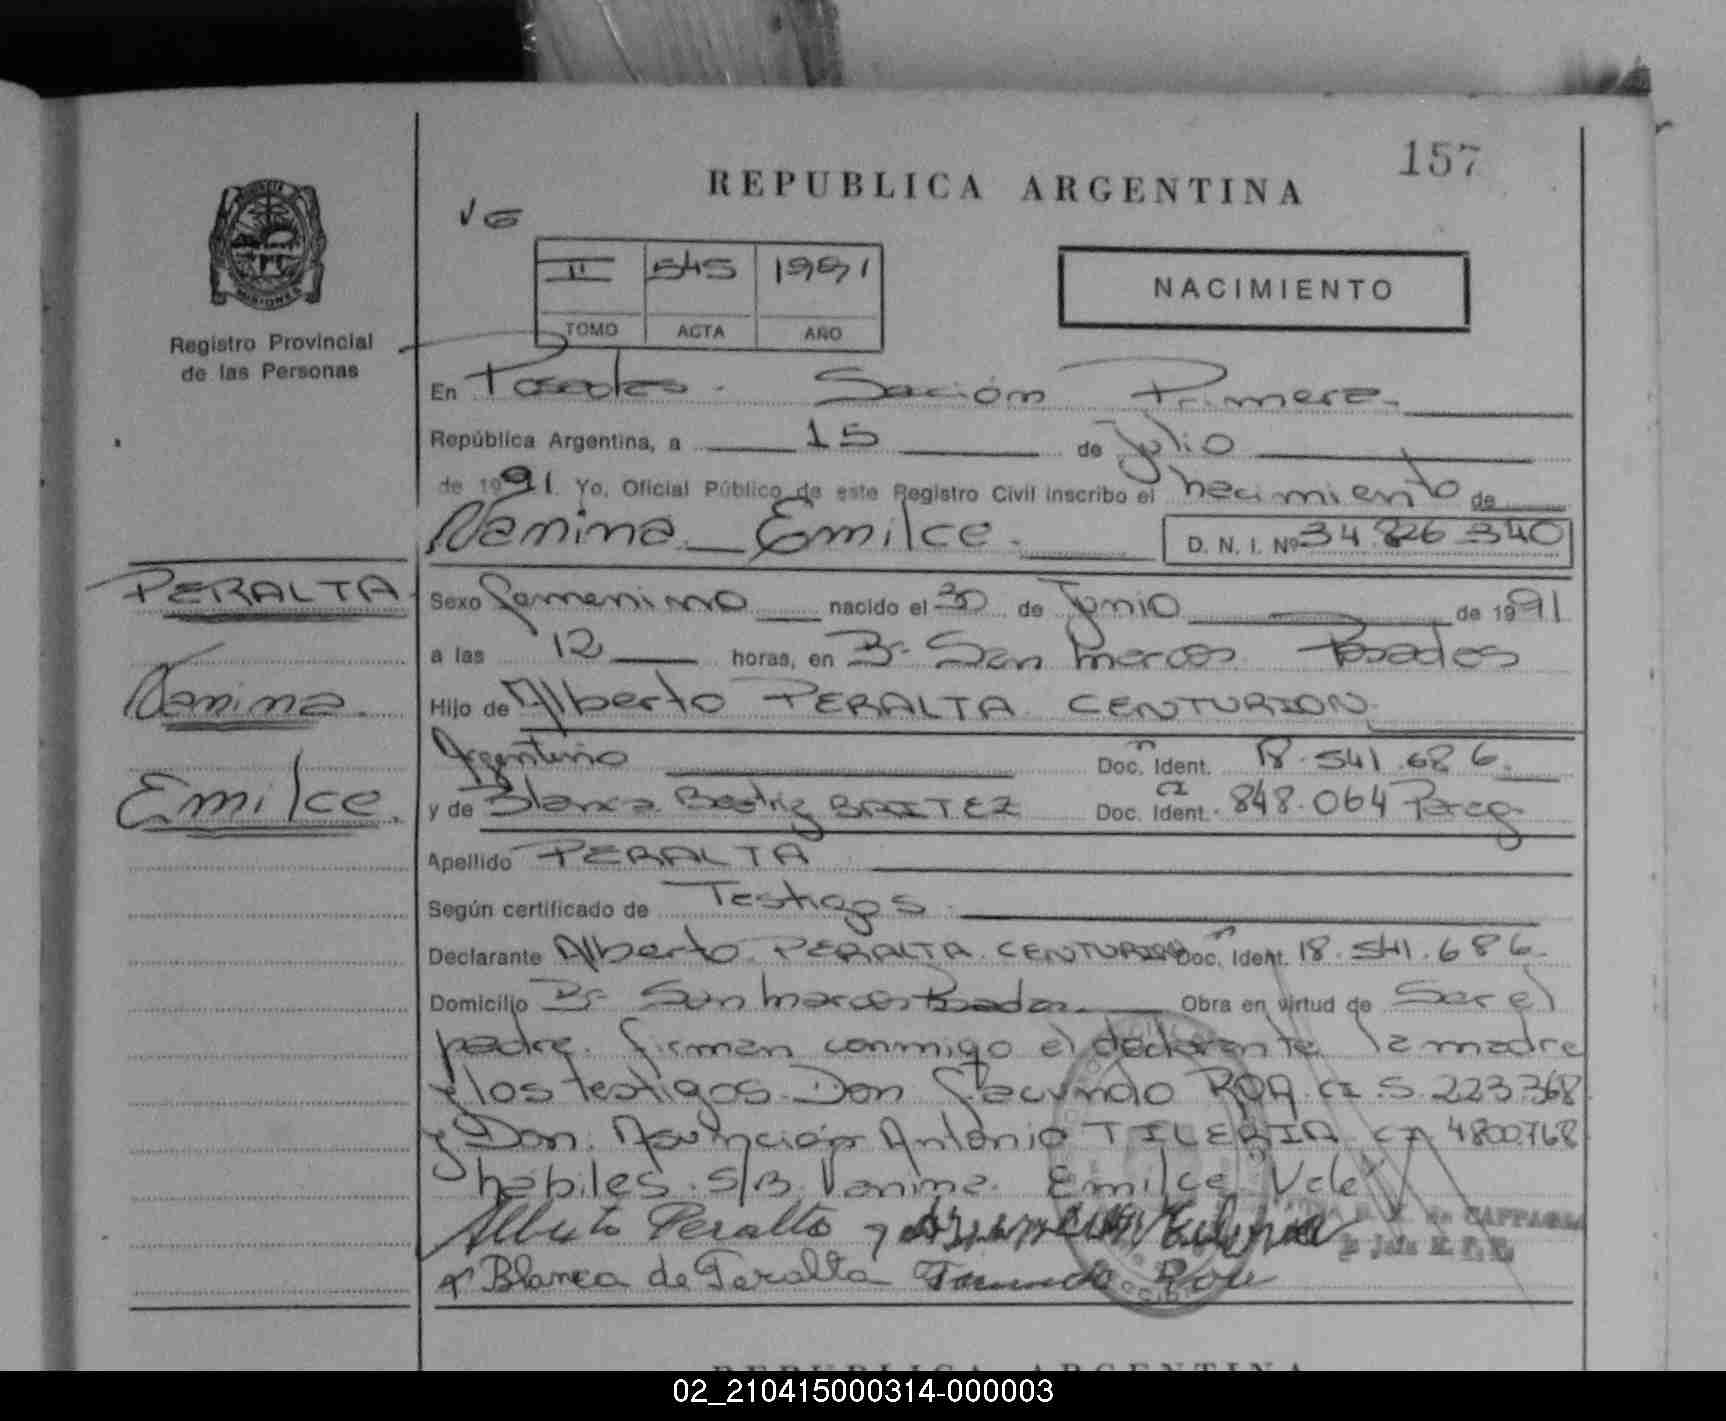 157
REPUBLICA ARGENTINA
MISIONES
Registro Provincial
de las Personas
II 545 1991
TOMO ACTA AÑO
NACIMIENTO
En Posadas. Sección Primera.
República Argentina, a 15 de Julio
de 1991. Yo, Oficial Público de este Registro Civil inscribo el nacimiento de
Vanina Emilce. D. N. I. Nº 34.826.340
PERALTA
Vanina.
Emilce.
Sexo femenino nacido el 30 de Junio de 1991
a las 12 horas, en Bº San Marcos Posadas
Hijo de Alberto PERALTA CENTURION
Argentino Doc. Ident. 18.541.686.
y de Blanca Beatriz BRITEZ Doc. Ident. CI 848.064 Parag.
Apellido PERALTA
Según certificado de Testigos
Declarante Alberto PERALTA CENTURION Doc. Ident. 18.541.686.
Domicilio Bº San Marcos Posadas Obra en virtud de Ser el
padre. firman conmigo el declarante la madre
y los testigos. Don Facundo ROA CI. 5.223.368
y Don. Asunción Antonio TILERIA CI 4800.768
habiles. S/B. Vanina. Emilce Vale
Alberto Peralta
Blanca de Peralta Facundo Roa
02_210415000314-000003